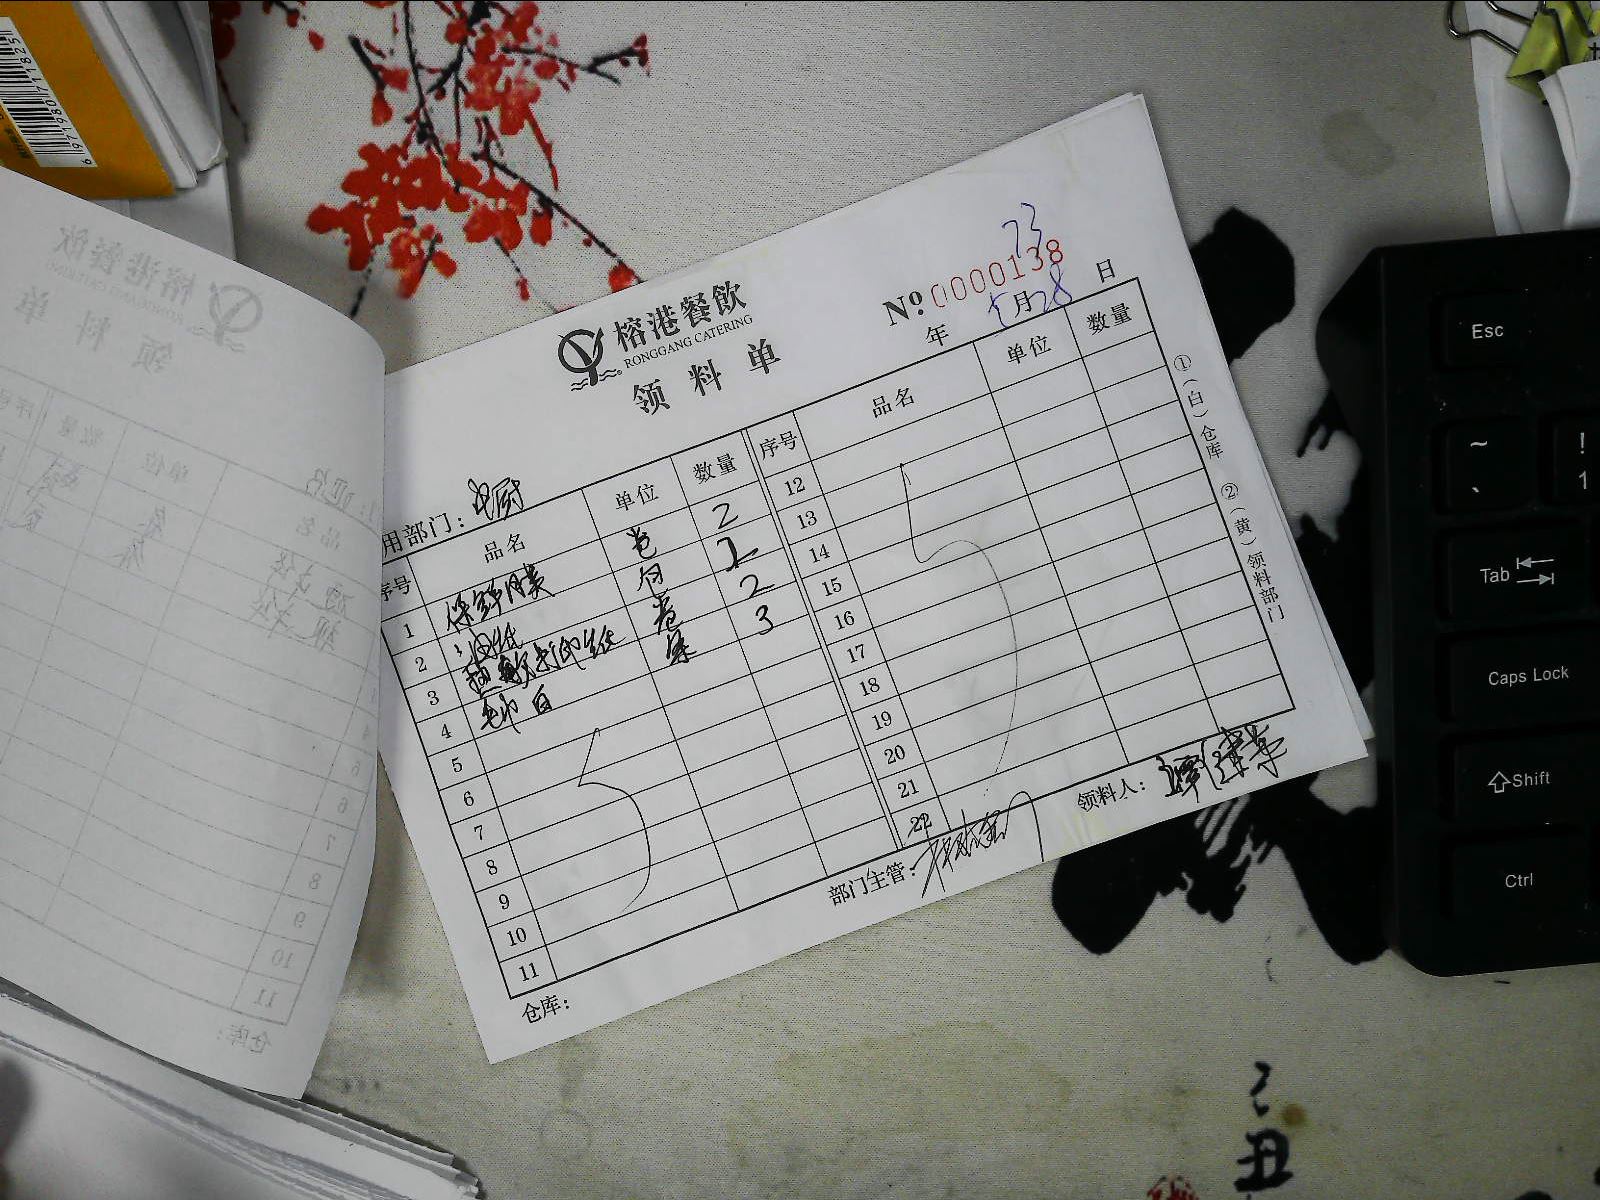 6971980711825
榕港餐飲
RONGGANG CATERING
领料单
№ 0000138
23
年 5月28日
用部门: 中厨
序号 品名 单位 数量 序号 品名 单位 数量
1 保鲜膜 卷 2 12
2 油纸 包 1 13
3 热敏打印纸 卷 2 14
4 毛巾 白 条 3 15
5 16
6 17
7 18
8 19
9 20
10 21
11 22
仓库: 部门主管: 领料人:
①(白)仓库 ②(黄)领料部门
榕港餐飲
领料单
Esc
~
`
!
1
Tab
Caps Lock
Shift
Ctrl
丑